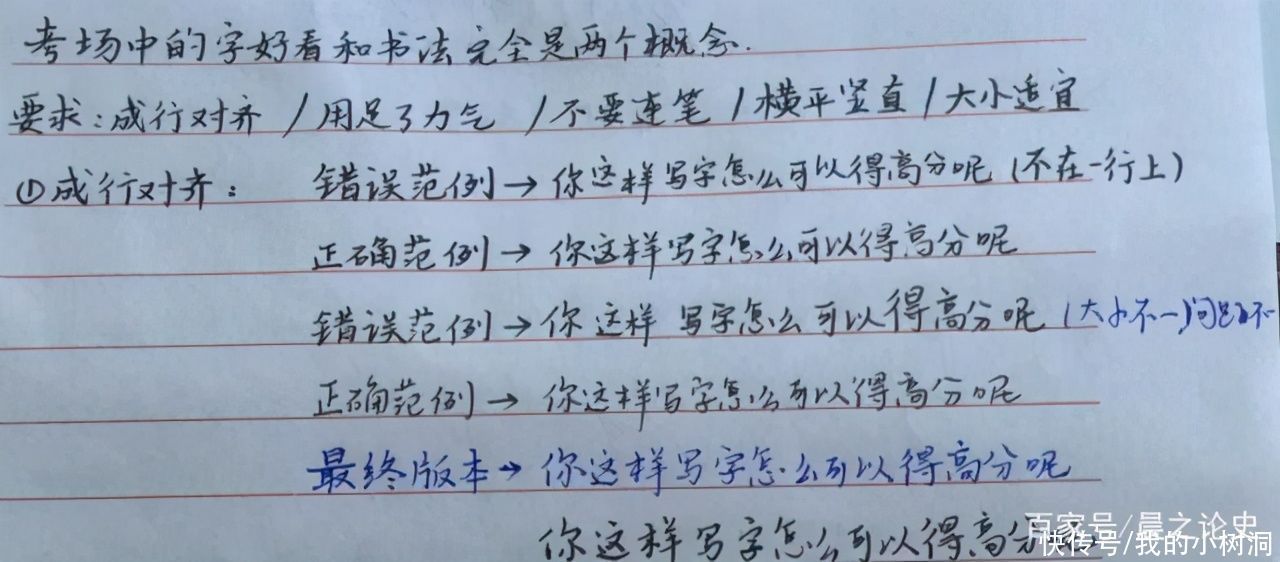 考场中的字好看和书法完全是两个概念.
要求:成行对齐 / 用足了力气 / 不要连笔 / 横平竖直 / 大小适宜
①成行对齐: 错误范例→你这样写字怎么可以得高分呢(不在一行上)
正确范例→你这样写字怎么可以得高分呢
错误范例→你这样写字怎么可以得高分呢(大小不一,间距不一
正确范例→你这样写字怎么可以得高分呢
最终版本→你这样写字怎么可以得高分呢
你这样写字怎么可以得高分
百家号/晨之论史
快传号/我的小树洞